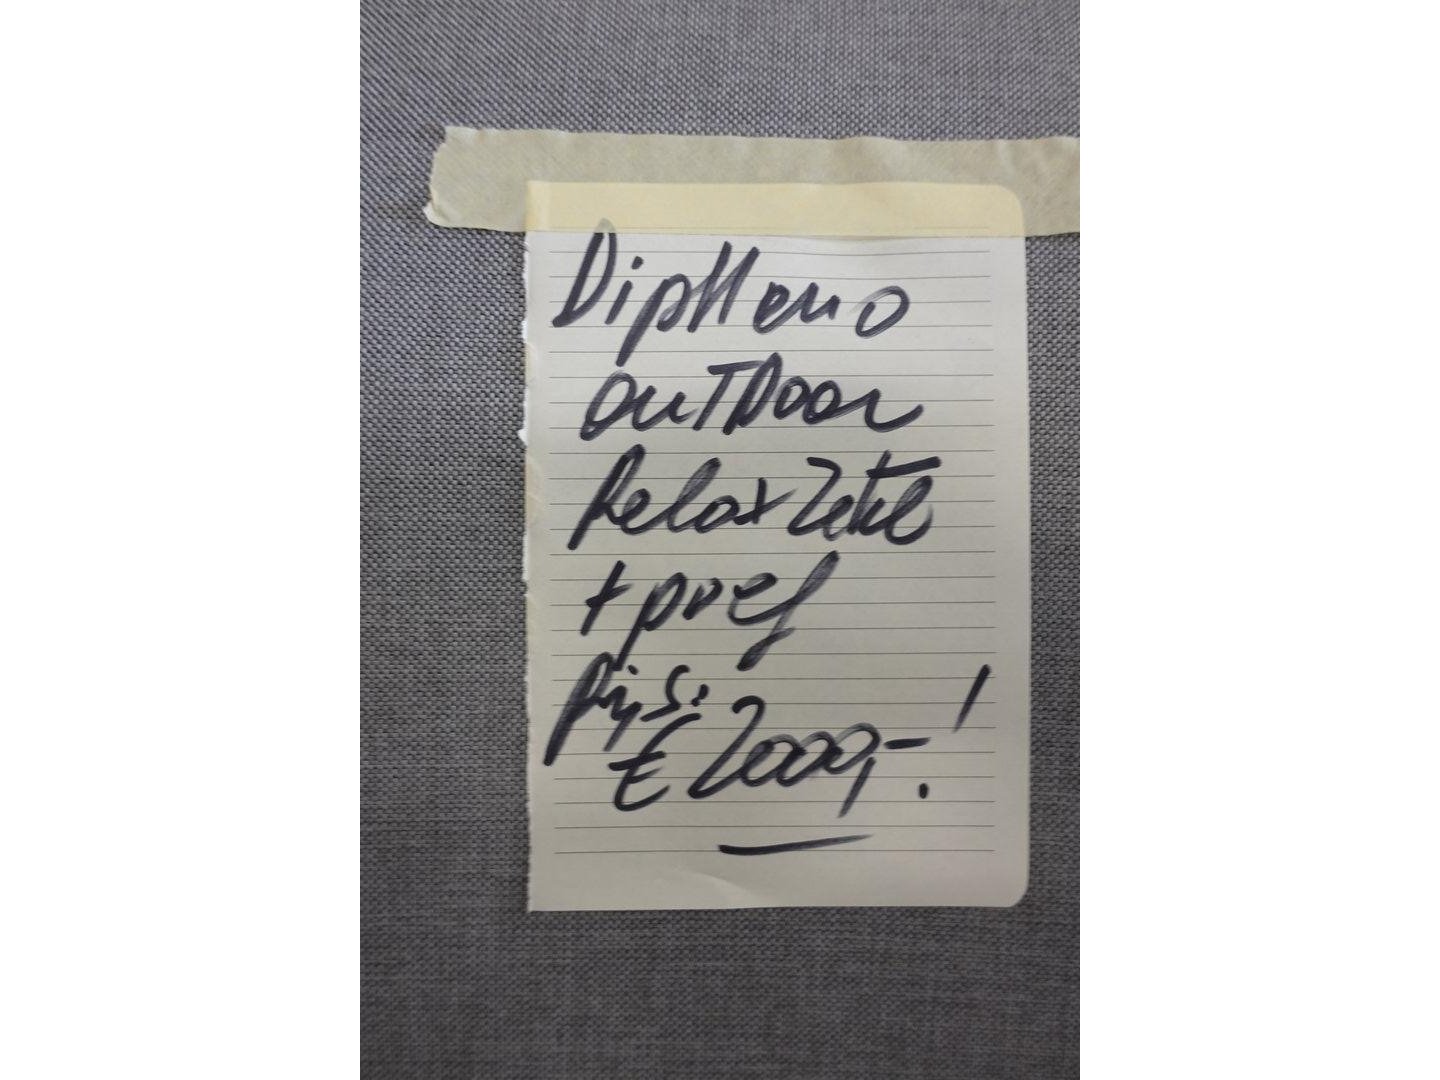 Diphano
outDoor
Relax Zetel
+ poef
Prijs:
€ 2000,- !